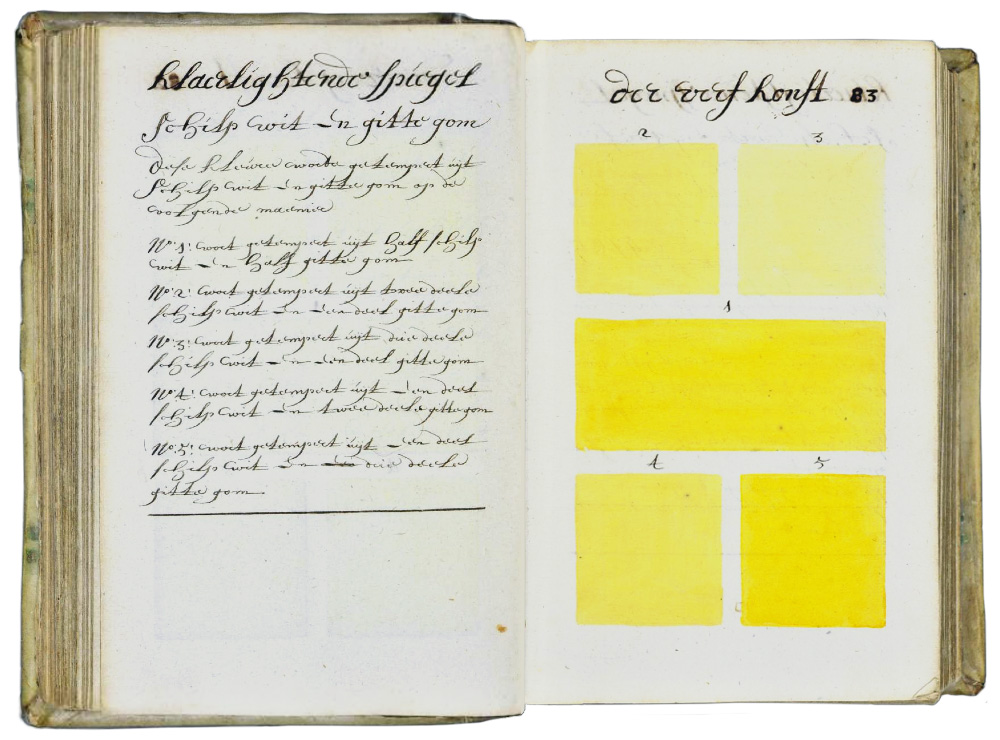 klaerlightende spiegel
schilp wit en gitte gom
dese kleure worde getempert uijt
schilp wit en gitte gom op de
volgende manier
No: 1: wort getempert uijt half schilp
wit en half gitte gom
No: 2: wort getempert uijt twee deele
schilp wit en een deel gitte gom
No: 3: wort getempert uijt drie deele
schilp wit en een deel gitte gom
No: 4: wort getempert uijt een deel
schilp wit en twee deele gitte gom
No: 5: wort getempert uijt een deel
schilp wit en drie deele
gitte gom
der verf konst 83
2 3
1
4 5